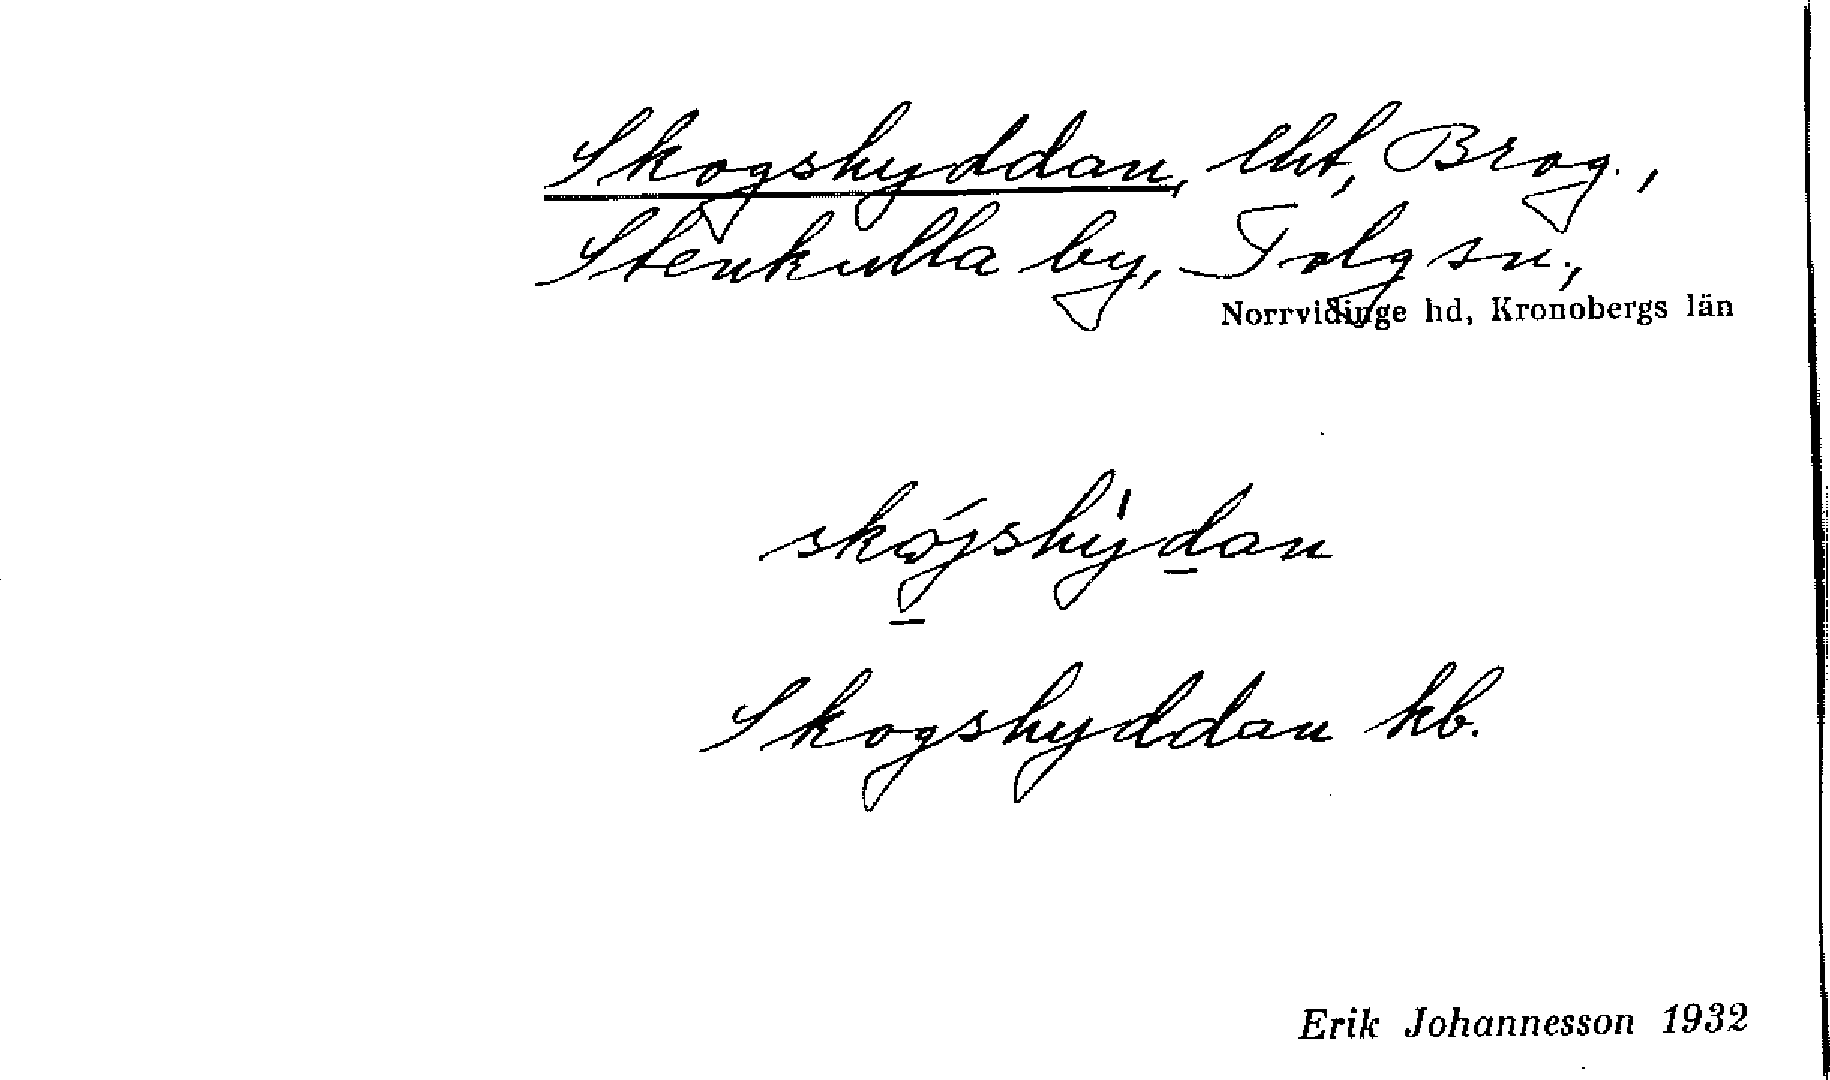 Skogshyddan, lht, Brog.,
Stenkulla by, Tolg sn.,
Norrvidinge hd, Kronobergs län
Skogshyddan kb.
Erik Johannesson 1932